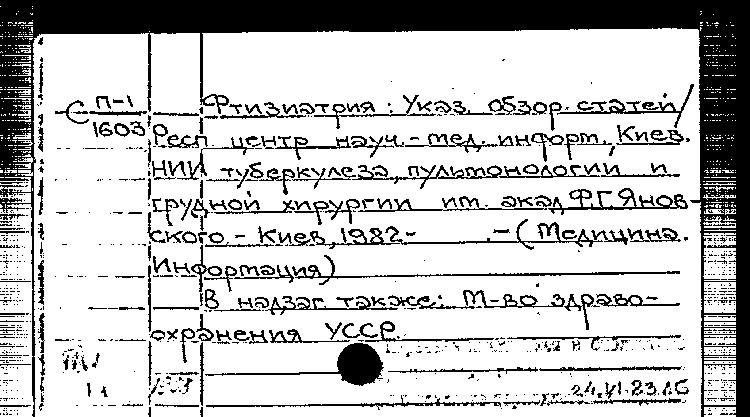 С П-1 Фтизиатрия : Указ. обзор. статей /
1603 Респ центр науч.-мед. информ., Киев.
НИИ туберкулеза, пульмонологии и
грудной хирургии им. акад Ф.Г.Янов-
ского - Киев, 1982- .-(Медицина.
Информация)
В надзаг также: М-во здраво-
охранения УССР
24.VI.83